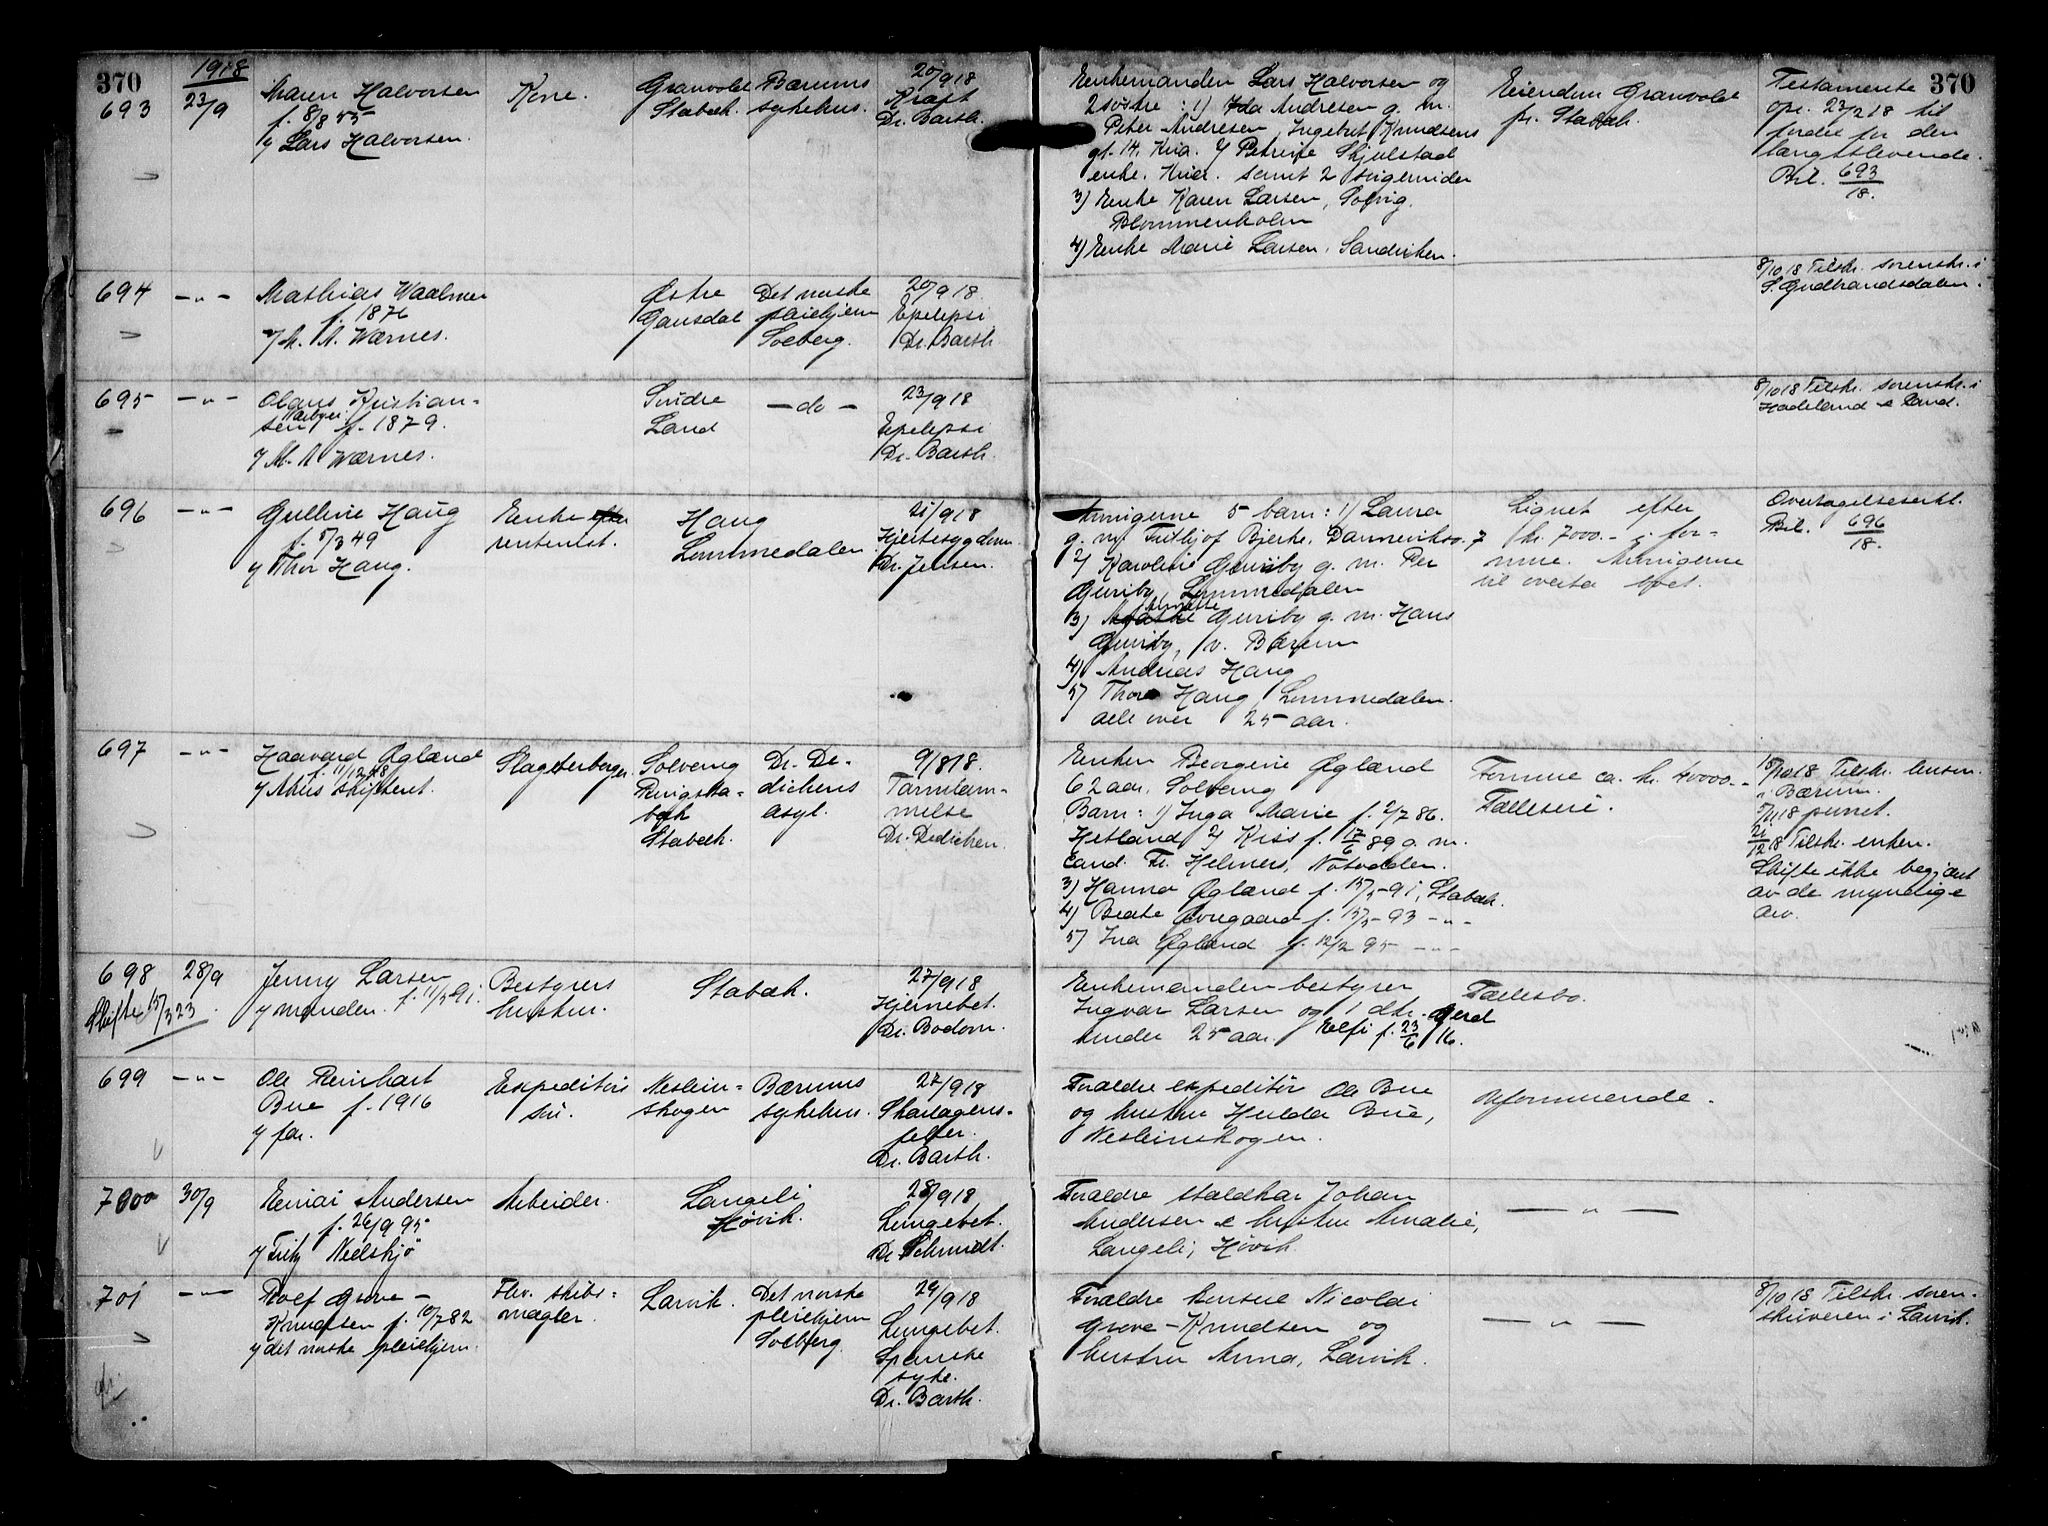 370
1918
693
23/9
Maren Halvorsen
f. 8/8 55
v/ Lars Halvorsen.
Kone.
Granvolet
Stabæk.
Bærums
sykehus.
20/9 18
Kræft
Dr. Barth.
Enkemanden Lars Halvorsen og
2 søstre : 1) Ida Andresen g. m.
Peter Andresen, Ingebret Knudsens
gt. 14, Kria. 2/ Petrine Skjulstad
enke. Kria. samt 2
3) Enke Karen Larsen, Solvig.
Blommenholm
4) Enke Marie Larsen, Sandviken.
Eiendom Granvolet
pr. Stabæk.
370
Testamente
opr. 23/2 18 til
fordel for den
længstlevende.
Bil. 693/18.
694
— " —
Mathias Waalmer
f. 1876
v/ M. A. Wærnes.
Østre
Gausdal
Det norske
pleiehjem
Solberg.
20/9 18
Epilepsi
Dr. Barth
8/10 18 Tilskr. sorenskr. i
S. Gudbrandsdalen.
695
— " —
Olaus Kristian-
sen f. 1879.
v/ M. A Wærnes.
Søndre
Land
— do —
23/9 18
Epilepsi
Dr. Barth.
8/10 18 Tilskr. sorenskr. i
Hadeland & Land.
696
— " —
Gulline Haug
f. 5/3 49
v/ Thor Haug.
Enke efter
rentenist.
Haug
Lommedalen
21/9 18
Hjertesygdom
Dr. Jensen.
Arvingerne 5 barn : 1) Laura
g. m. Fritjof Bjerke, Danneviksv. 7
2/ Karoline Guriby g. m. Per
Guriby, Lommedalen
3) Guriby g. m. Hans
Guriby, v. Bærum
4) Andreas Haug
5) Thora Haug, Lommedalen.
alle over 25 aar.
Lignet efter
kr. 7000.- i for-
mue. Arvingerne
vil overta boet.
Overtagelseserkl.
Bil. 696/18.
697
— " —
Haavard Øgland
f. 11/12 48
v/ Akers skifteret.
Slagterborger.
Solveng
Ringsta-
bæk
Stabæk.
Dr. De-
dichens
asyl.
9/8 18.
Tarmlam-
melse
Dr. Dedichen.
Enken Bergine Øgland
62 aar, Solveng
Barn : 1) Inga Marie f. 2/7 86.
Hetland 2/ Kiss f. 17/6 89 g. m.
Cand. Fr. Helmers, Notodden.
3) Hanna Øgland f. 15/5 - 91, Stabæk.
4) Beate Øvregaard f. 15/5 - 93 - " -
5) Ina Øgland f. 12/2 95 - " -
Formue ca. kr. 40000.-
Fælleseie.
15/10 18 Tilskr. lensm.
i Bærum.
5/11 18 purret.
21/12 18 Tilskr. enken.
Skifte ikke begjært
av de myndige
arv.
698
28/9
Skifte 15/3 23
Jenny Larsen
v/ manden. f. 11/5 - 91.
Bestyrers
hustru.
Stabæk.
27/9 18
Hjernebet.
Dr. Bodom.
Enkemanden bestyrer
Ingvar Larsen og 1 dtr. Gerd
under 25 aar. Elfi f. 23/6 16.
Fællesbo.
699
— " —
Ole Reinhart
Bue f. 1916
v/ far.
Expeditørs
søn.
Nesøien-
skogen
Bærums
sykehus.
27/9 18
Skarlagens-
feber.
Dr. Barth.
Forældre expeditør Ole Bue
og hustru Hulda Bue,
Uformuende.
700
30/9
Einar Andersen
f. 26/9 95
v/ Fritz Nielskjø
Arbeider.
Langeli
Høvik.
28/9 18
Lungebet.
Dr. Schmidt.
Forældre staldkar Johan
Andersen & hustru Amalie,
Langeli, Høvik
— " —
701
— " —
Rolf Grove-
Knudsen f. 10/7 82
v/ det norske pleiehjem.
Fhv. skibs-
mægler.
Larvik.
Det norske
pleiehjem
Solberg.
29/9 18
Lungebet.
Spanske
syke.
Dr. Barth.
Forældre konsul Nicolai
Grove-Knudsen og
hustru Anna, Larvik.
— " —
8/10 18 Tilskr. soren-
skriveren i Larvik.